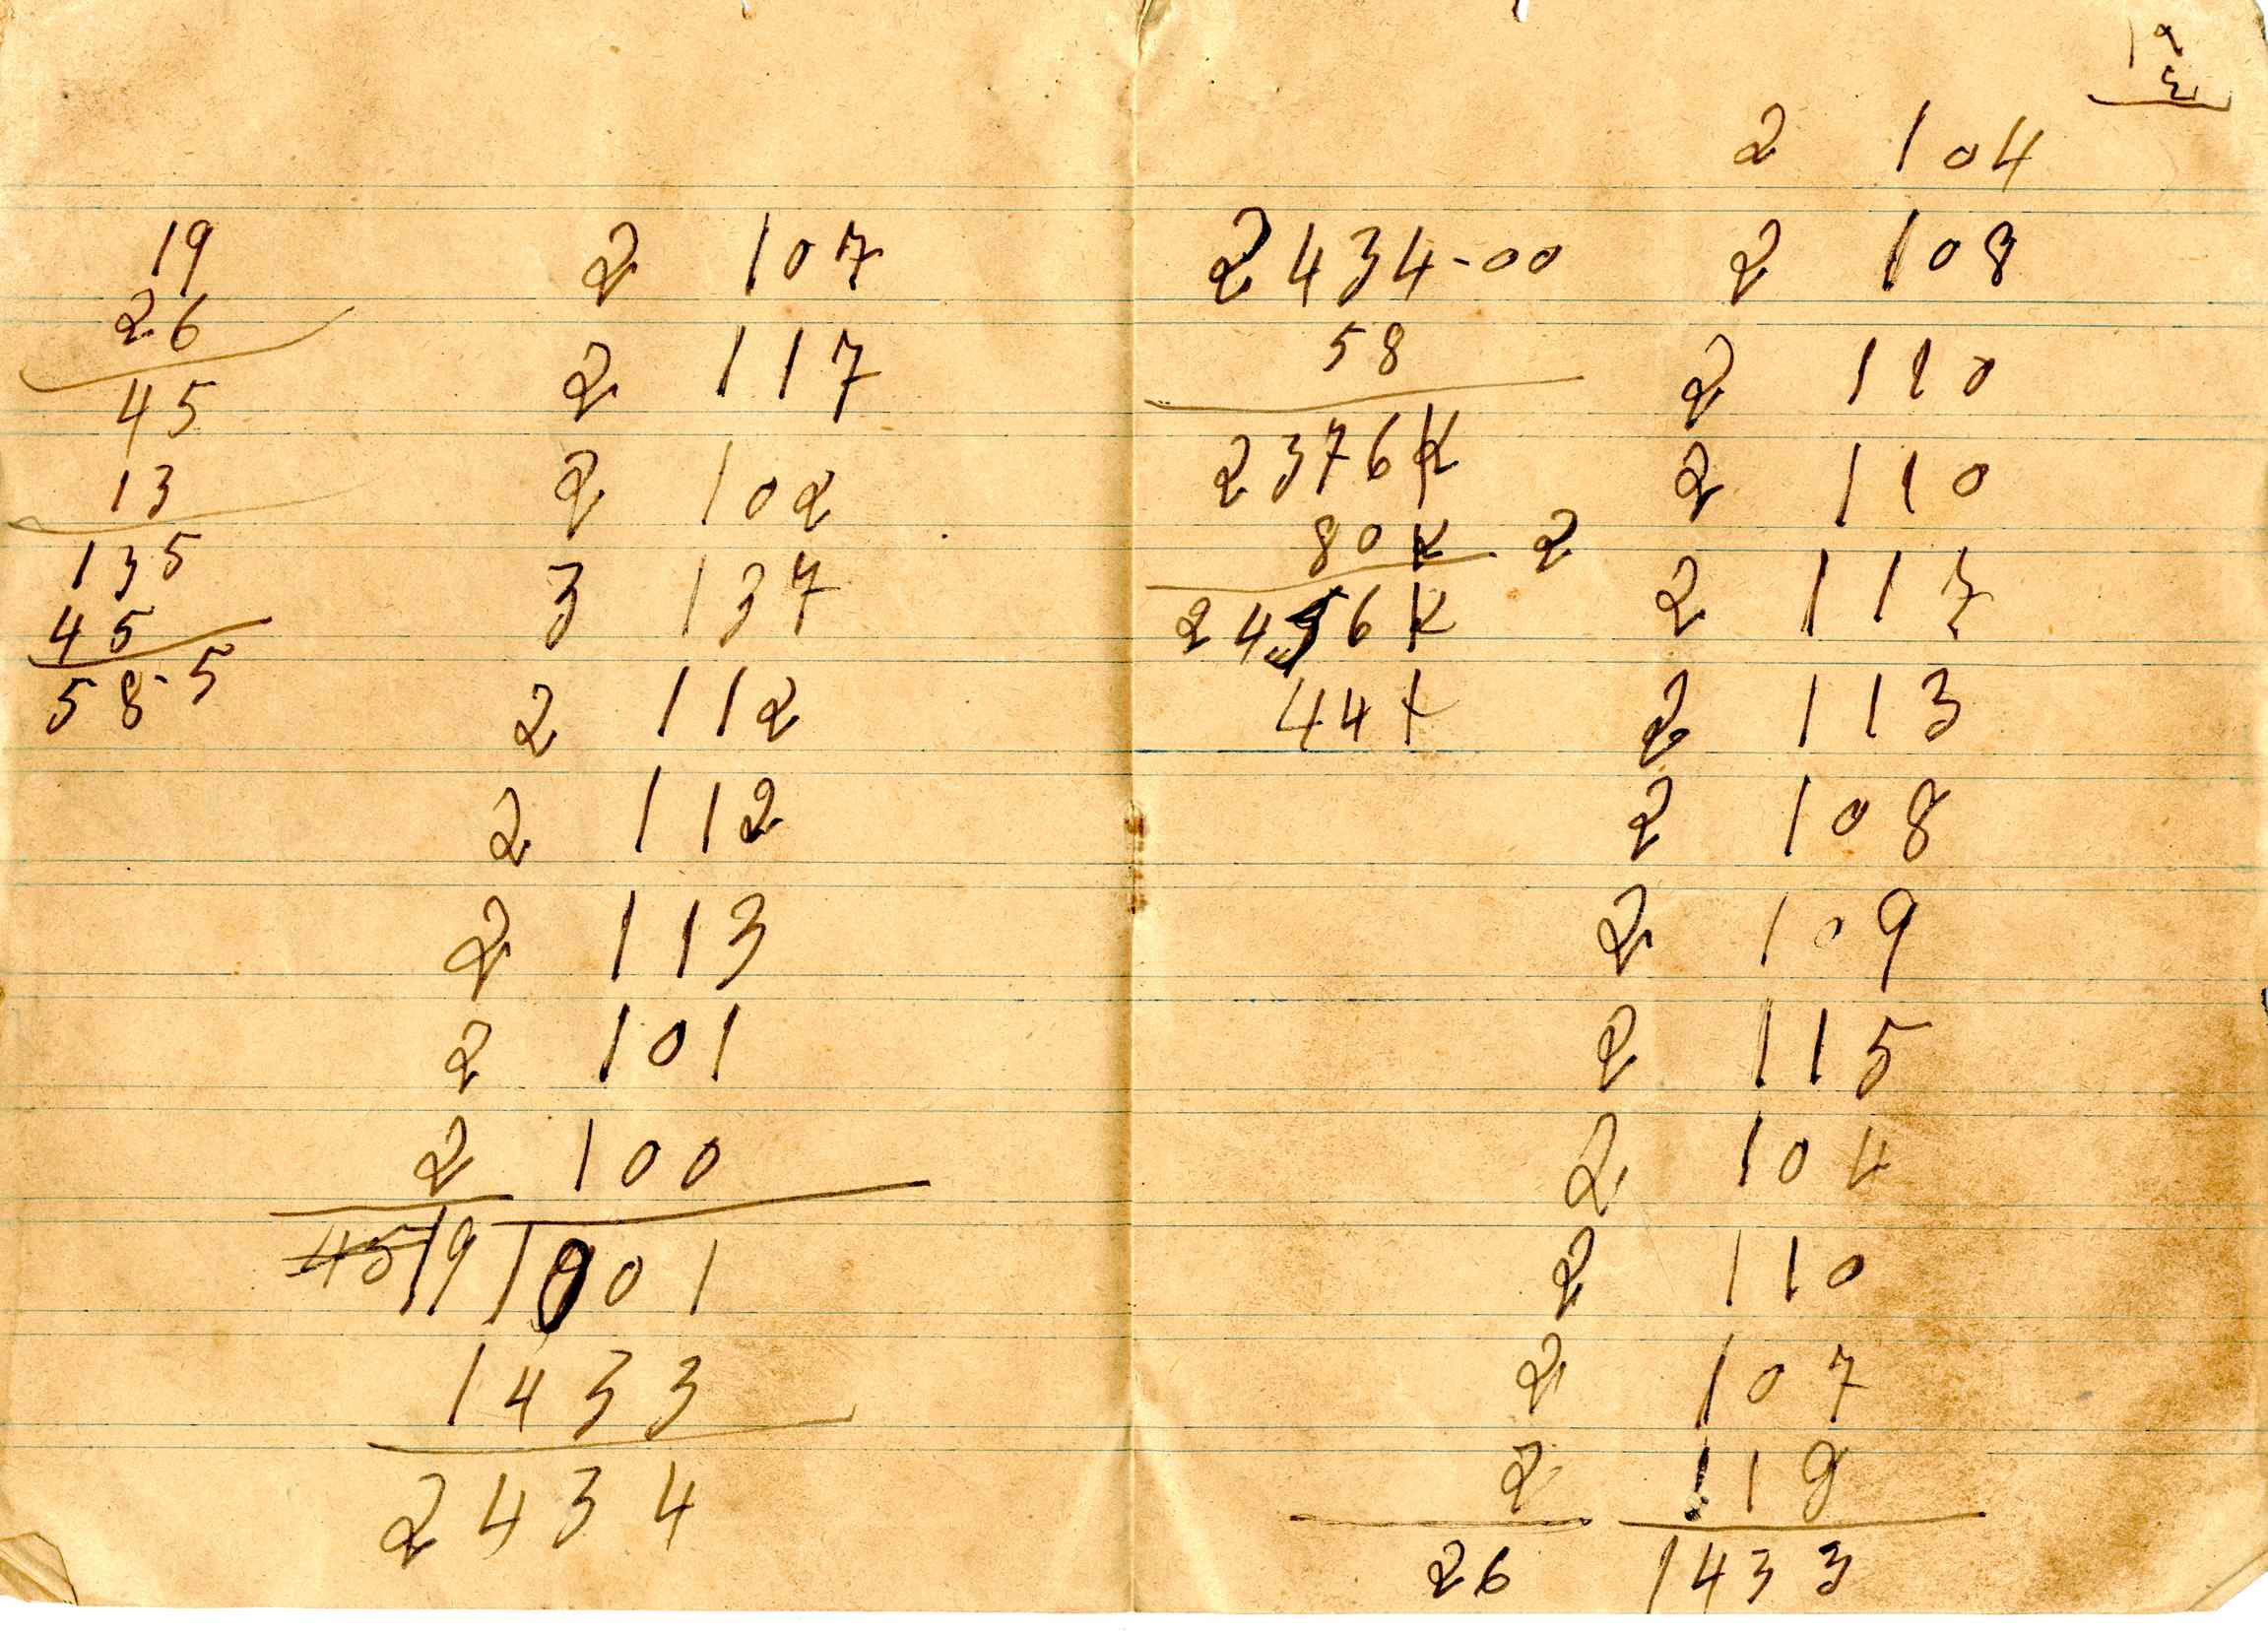 19
26
45
13
135
45
58-5
2 107
2 117
2 102
3 137
2 112
2 112
2 113
2 101
2 100
45 19 1001
1433
2434
2434-00
58
2376 K
80 K 2
2456 K
44 K
19
2 104
2 108
2 110
2 110
2 117
2 113
2 108
2 109
2 115
2 104
2 110
2 107
2 118
26 1433